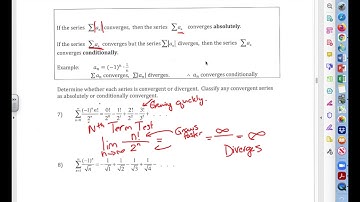 If the series ∑|aₙ| converges, then the series ∑ aₙ converges absolutely.
If the series ∑ aₙ converges but the series ∑|aₙ| diverges, then the series ∑ aₙ
converges conditionally.
Example:
∑ aₙ converges, ∑|aₙ| diverges. ∴ aₙ converges conditionally
Determine whether each series is convergent or divergent. Classify any convergent series
as absolutely or conditionally convergent.
Growing quickly.
7)
Nth Term Test
lim n→∞ n!/2ⁿ = Grows faster = ∞ = ∞
Diverges
8)